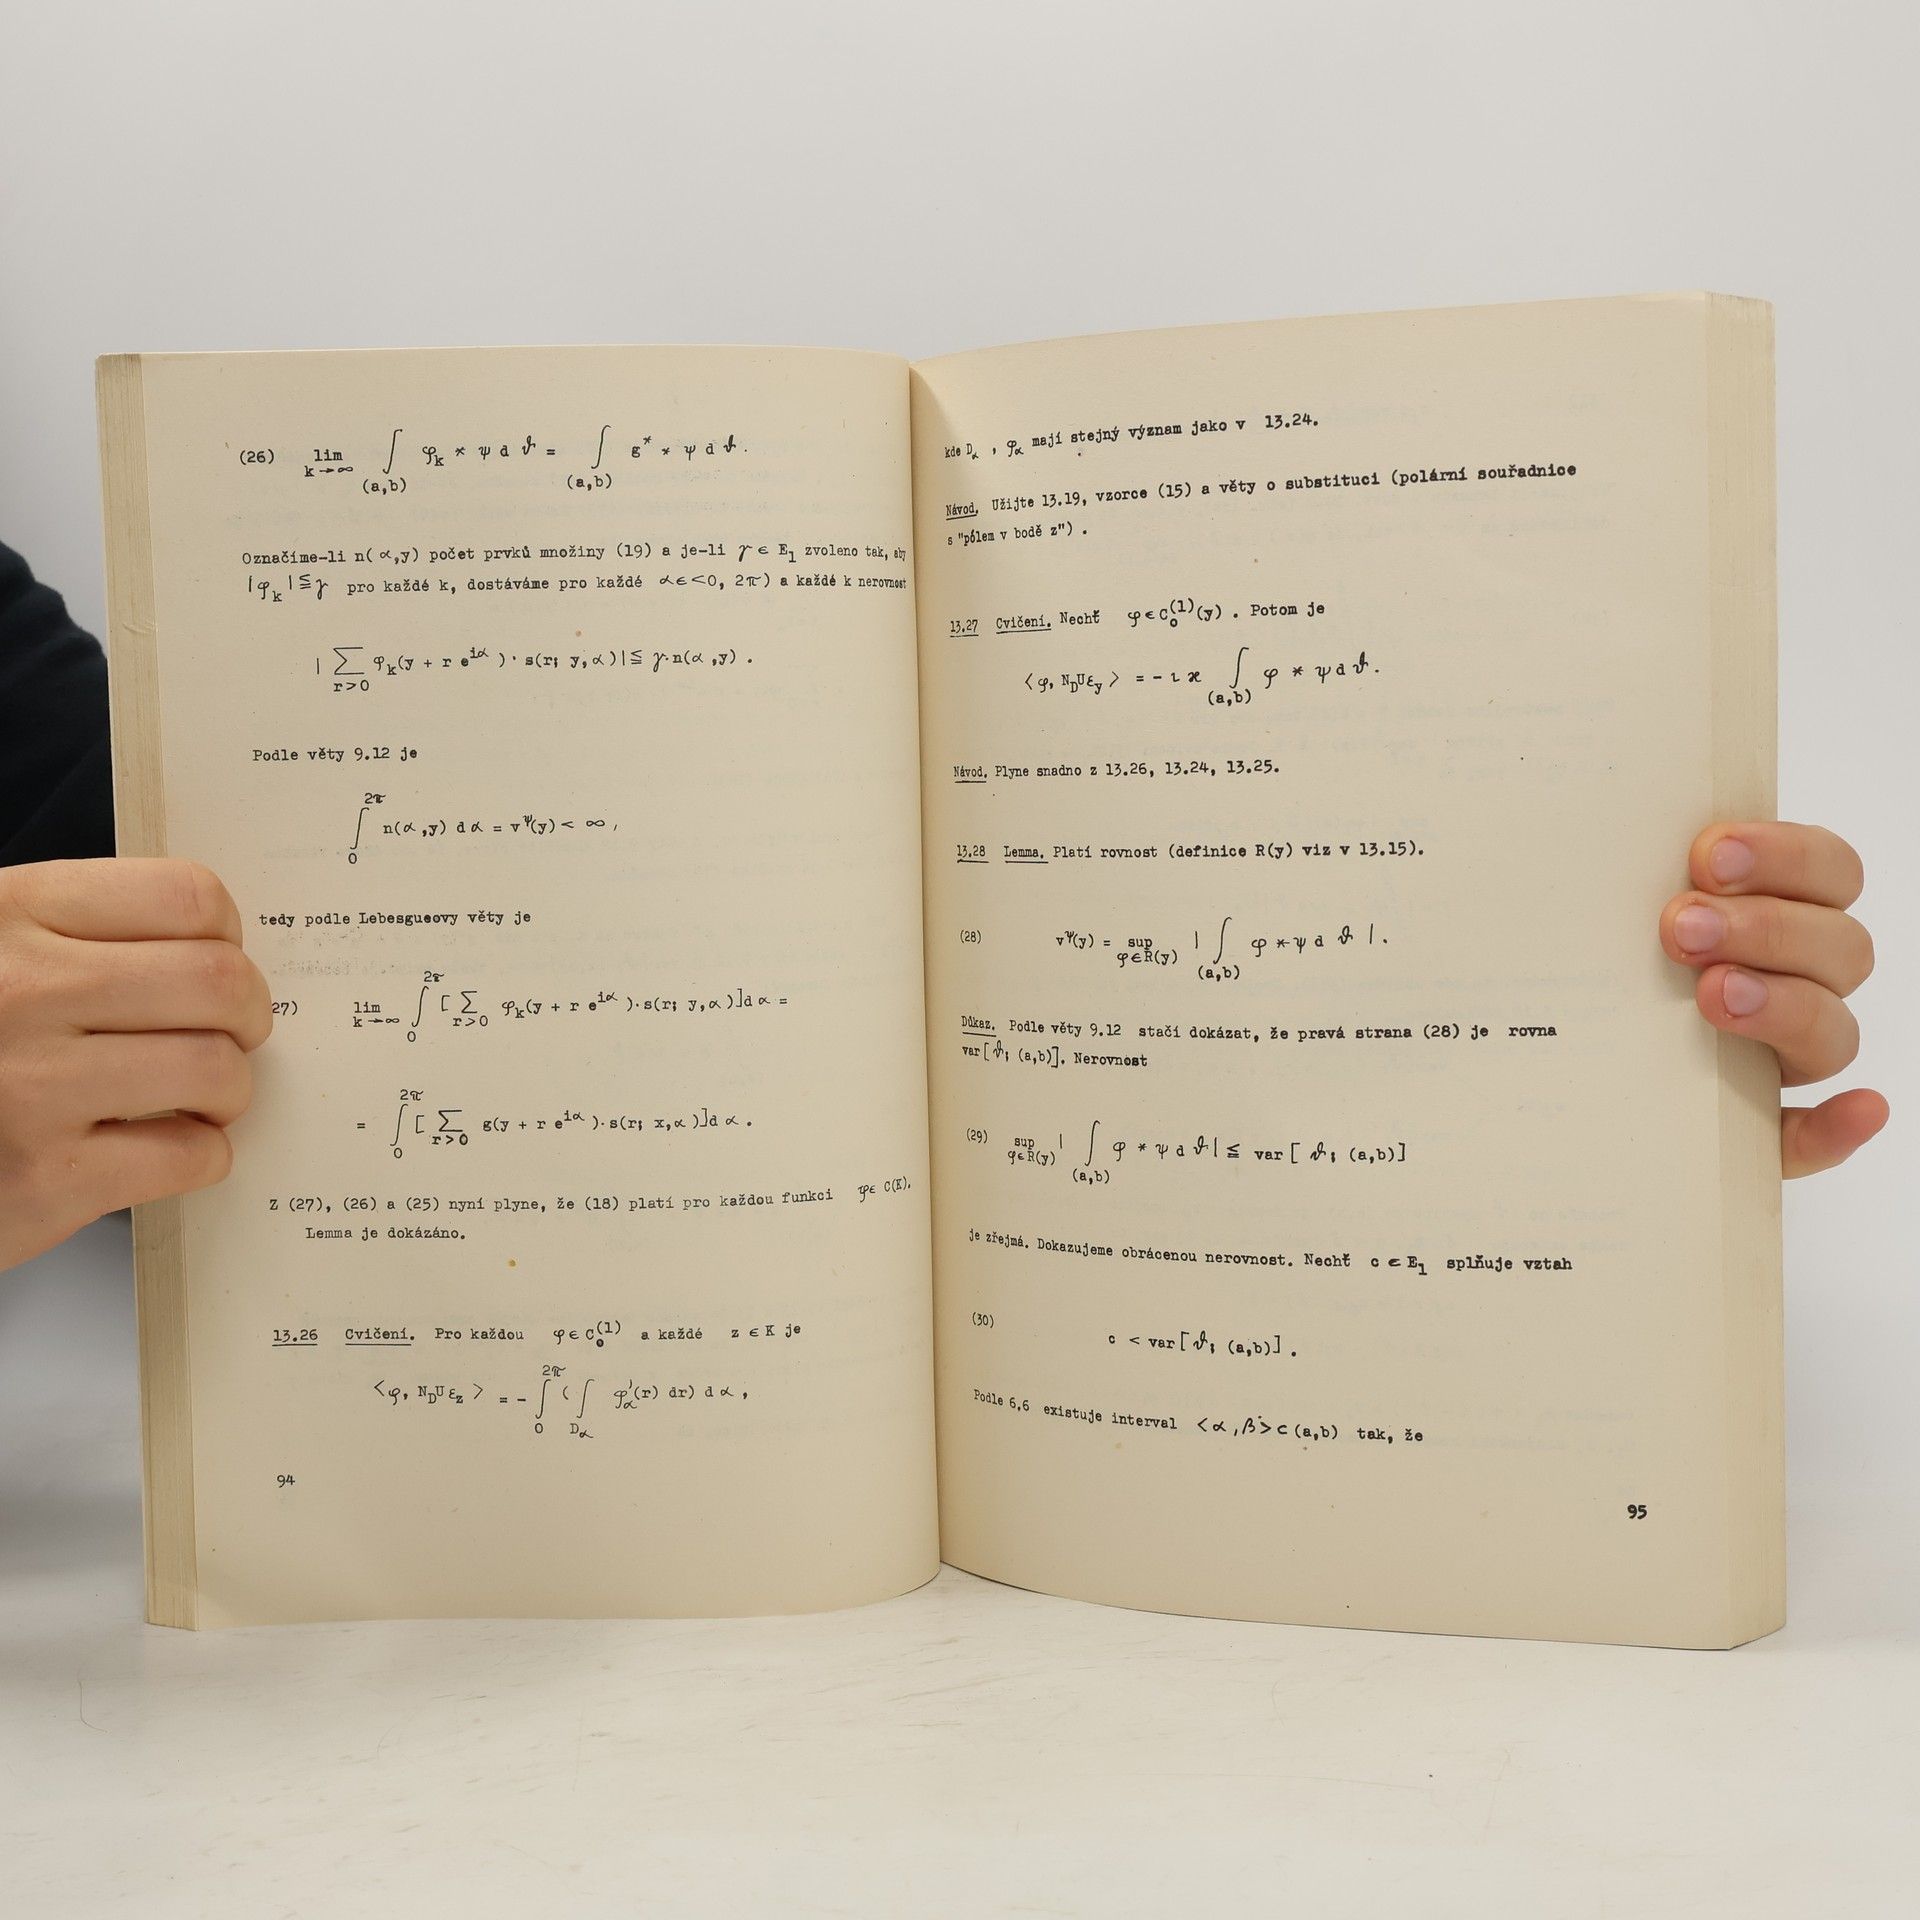 (26) lim k→∞ ∫(a,b) φk * ψ d ϑ = ∫(a,b) g* * ψ d ϑ.
Označíme-li n(α,y) počet prvků množiny (19) a je-li γ ∈ E1 zvoleno tak, aby
|φk| ≦ γ pro každé k, dostáváme pro každé α∈<0, 2π) a každé k nerovnost
| ∑ r>0 φk(y + r e^iα)·s(r; y,α)| ≦ γ·n(α,y) .
Podle věty 9.12 je
∫0^2π n(α,y) d α = v^ψ(y) < ∞ ,
tedy podle Lebesgueovy věty je
27) lim k→∞ ∫0^2π [ ∑ r>0 φk(y + r e^iα)·s(r; y,α)]d α =
= ∫0^2π [ ∑ r>0 g(y + r e^iα)·s(r; x,α)]d α .
Z (27), (26) a (25) nyní plyne, že (18) platí pro každou funkci φ∈ C(K).
Lemma je dokázáno.
13.26 Cvičení. Pro každou φ∈C0^(1) a každé z ∈ K je
<φ, NDU εz > = - ∫0^2π ( ∫Dα φα'(r) dr) d α ,
94
kde Dα , φα mají stejný význam jako v 13.24.
Návod. Užijte 13.19, vzorce (15) a věty o substituci (polární souřadnice
s "pólem v bodě z") .
13.27 Cvičení. Nechť φ∈C0^(1)(y) . Potom je
<φ, NDUεy > = - ι ϰ ∫(a,b) φ * ψ d ϑ.
Návod. Plyne snadno z 13.26, 13.24, 13.25.
13.28 Lemma. Platí rovnost (definice R(y) viz v 13.15).
(28) v^ψ(y) = sup φ∈R(y) | ∫(a,b) φ *ψ d ϑ | .
Důkaz. Podle věty 9.12 stačí dokázat, že pravá strana (28) je rovna
var[ϑ; (a,b)]. Nerovnost
(29) sup φ∈R(y) | ∫(a,b) φ * ψ d ϑ| ≦ var [ ϑ; (a,b)]
je zřejmá. Dokazujeme obrácenou nerovnost. Nechť c ∈ E1 splňuje vztah
(30) c < var[ϑ; (a,b)] .
Podle 6.6 existuje interval <α,β>⊂(a,b) tak, že
95